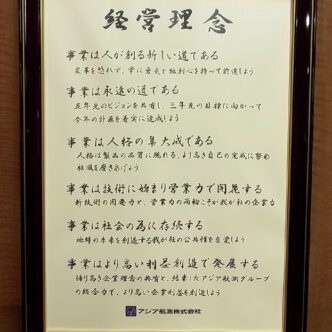 経営理念
事業は人が創る新しい道である
変革を怒れず、常に勇気と独創心を持って前進しよう
事業は永遠の道である
五年先のビジョンを共有し、三年先の目標に向かって
今年の計画を着実に達成しよう
事業は人格の集大成である
人格は製品の品質に現れる、より高き自己の完成に努め
社風を磨きあげよう
事業は技術に始まり営業力で開花する
新技術の開発力と、営業力の両輪こそが我が社の企業力
事業は社会の為に存続する
地球の未来を創造する我が社の公共性を自覚しよう
事業はより高い利益創造で発展する
誇り高き企業理念の共有と、結束したアジア航測グループ
の総合力で、より高い企業利益を創造しよう
アジア航測株式会社